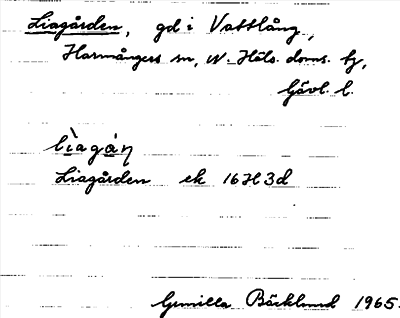 Liagården, gd i Vattlång,
Harmångers sn, N. Häls. doms. hj,
Gävl. l.
lìagáṇ
Liagården ek 16H3d
Gunilla Bäcklund 1965.